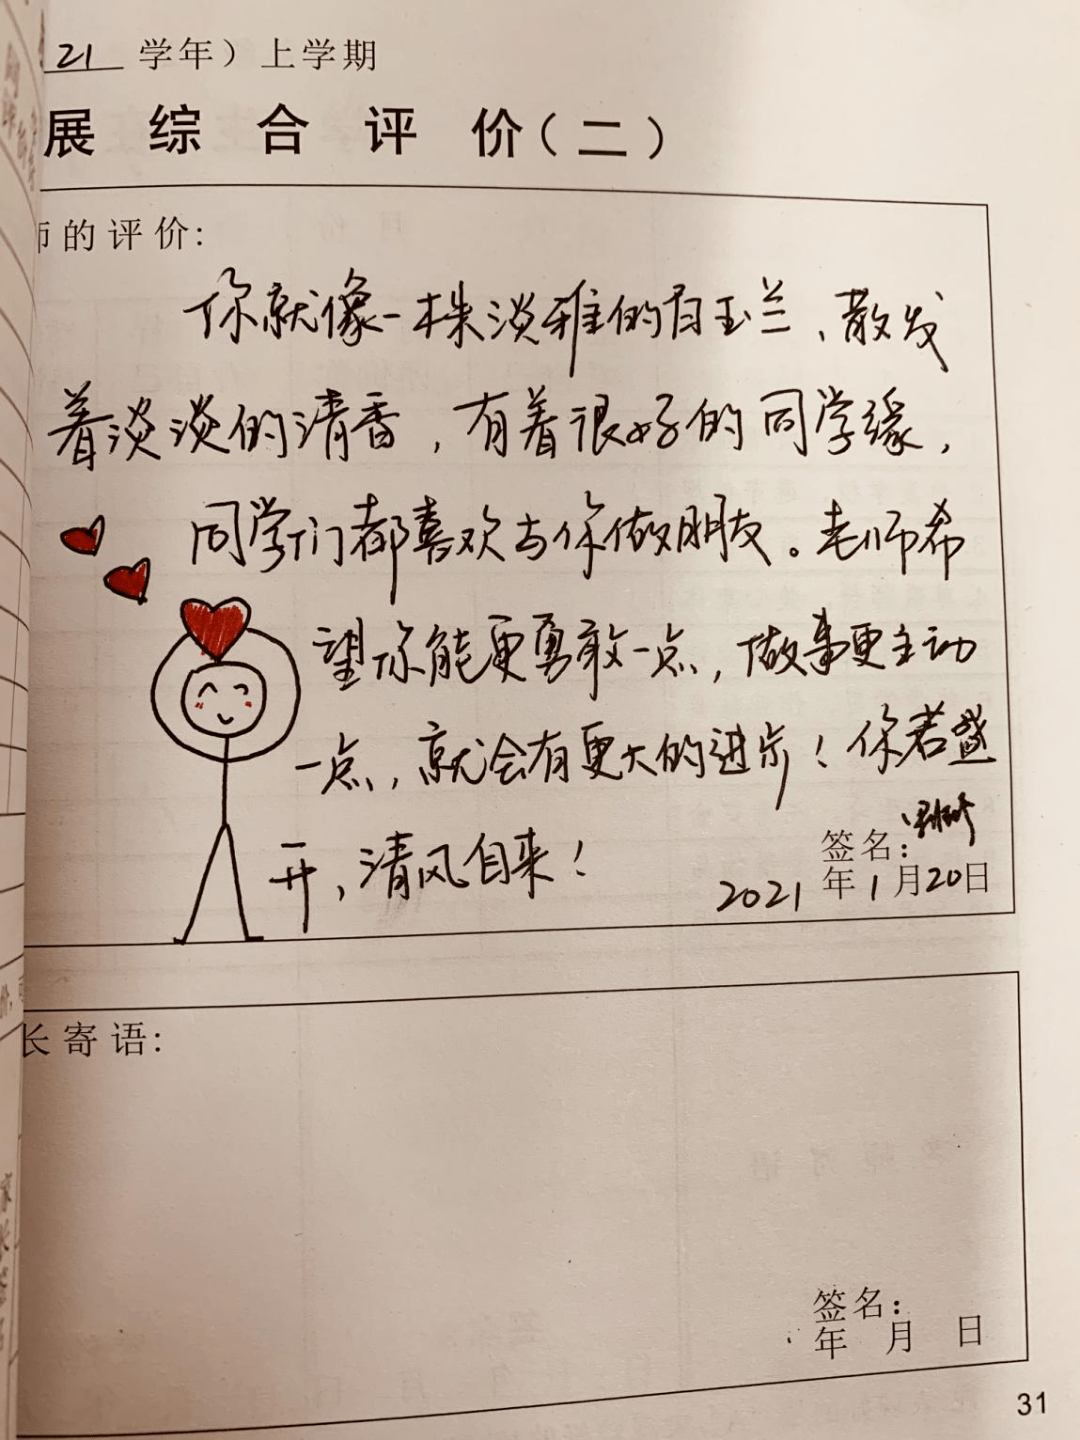 21 学年）上学期
展 综 合 评 价（二）
师的评价：
你就像一株淡雅的白玉兰，散发
着淡淡的清香，有着很好的同学缘，
同学们都喜欢与你做朋友。老师希
望你能更勇敢一点，做事更主动
一点，就会有更大的进步！你若盛
开，清风自来！
签名：
2021 年 1 月 20 日
长寄语：
签名：
年 月 日
31